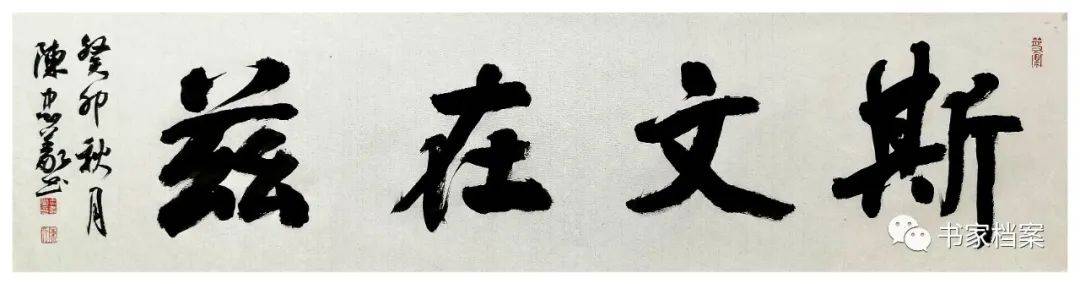 斯文在兹
癸卯秋月
陈忠义书
书家档案